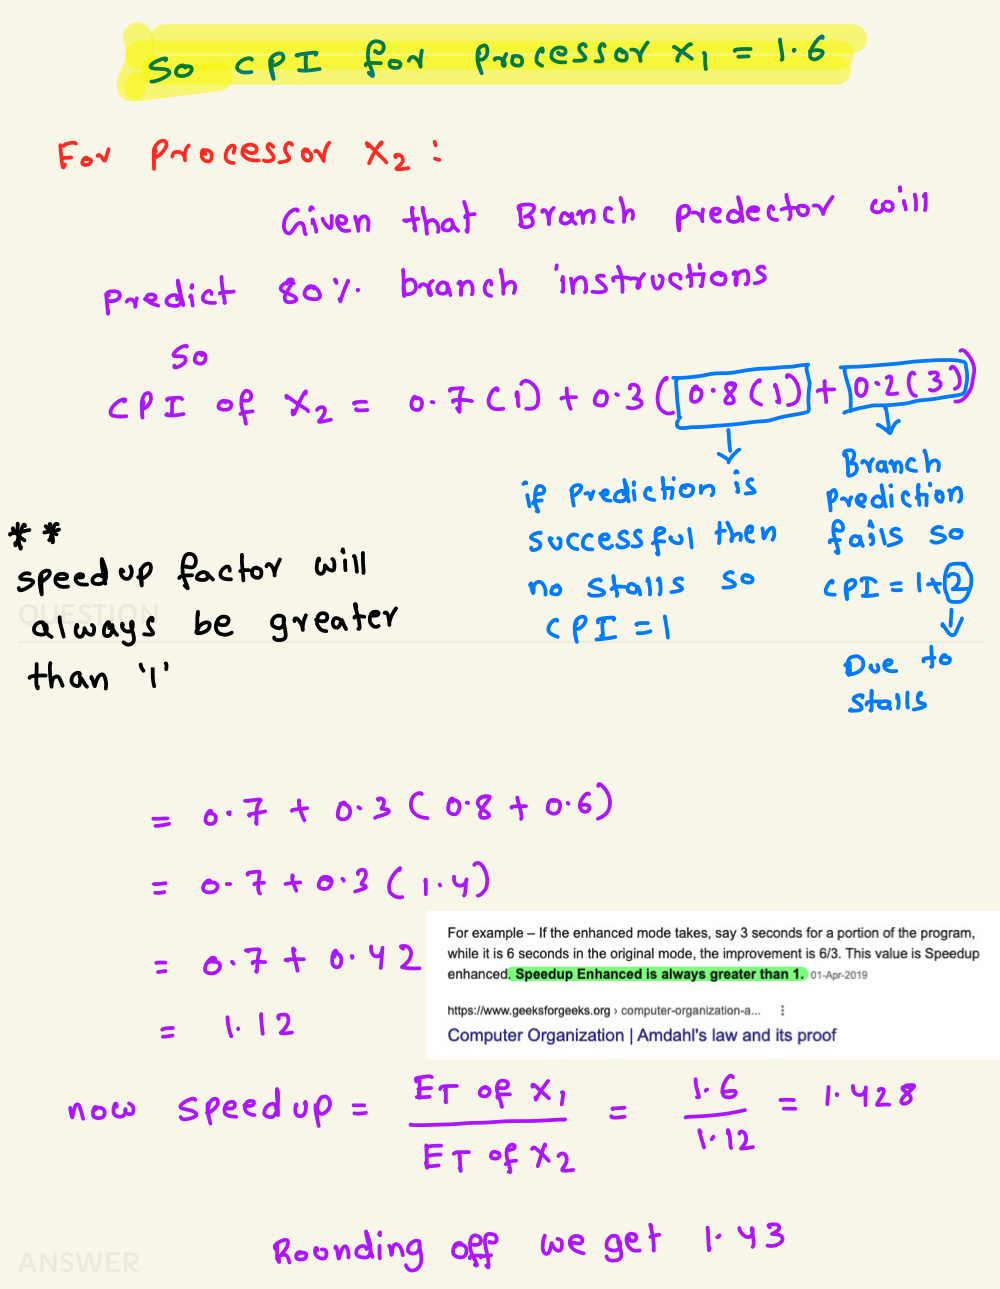 So CPI for Processor X1 = 1.6
For Processor X2 :
Given that Branch predector will
Predict 80% branch instructions
So
CPI of X2 = 0.7(1) + 0.3(0.8(1) + 0.2(3))
if Prediction is
successful then
no stalls so
CPI = 1
Branch
Prediction
fails so
CPI = 1+2
Due to
stalls
**
speedup factor will
QUESTION
always be greater
than '1'
= 0.7 + 0.3 ( 0.8 + 0.6)
= 0.7 + 0.3 ( 1.4)
= 0.7 + 0.42
= 1.12
For example – If the enhanced mode takes, say 3 seconds for a portion of the program,
while it is 6 seconds in the original mode, the improvement is 6/3. This value is Speedup
enhanced. Speedup Enhanced is always greater than 1. 01-Apr-2019
https://www.geeksforgeeks.org › computer-organization-a... ⋮
Computer Organization | Amdahl's law and its proof
now speedup = ET of X1 / ET of X2 = 1.6 / 1.12 = 1.428
Rounding off we get 1.43
ANSWER